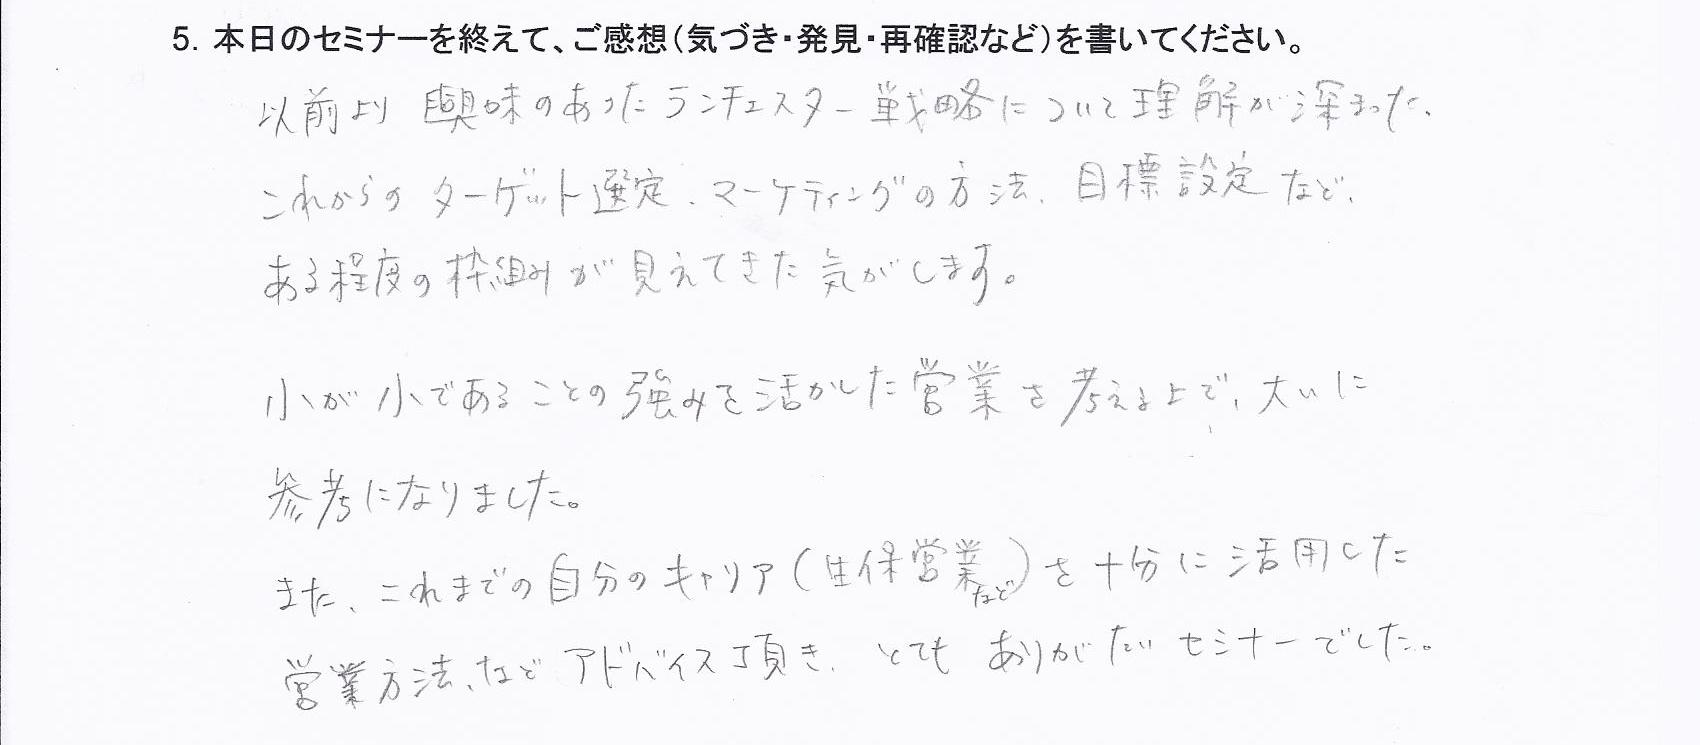 5. 本日のセミナーを終えて、ご感想（気づき・発見・再確認など）を書いてください。
以前より興味のあったランチェスター戦略について理解が深まった、
これからのターゲット選定、マーケティングの方法、目標設定など、
ある程度の枠組みが見えてきた気がします。
小が小であることの強みを活かした営業を考える上で、大いに
参考になりました。
また、これまでの自分のキャリア（生保営業など）を十分に活用した
営業方法、などアドバイス頂き、とてもありがたいセミナーでした。